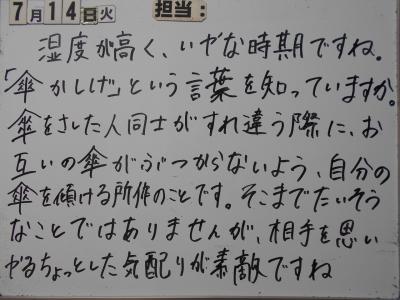 7月14日火 担当:
湿度が高く、いやな時期ですね。
「傘かしげ」という言葉を知っていますか。
傘をさした人同士がすれ違う際に、お
互いの傘がぶつからないよう、自分の
傘を傾ける所作のことです。そこまでたいそう
なことではありませんが、相手を思い
やるちょっとした気配りが素敵ですね